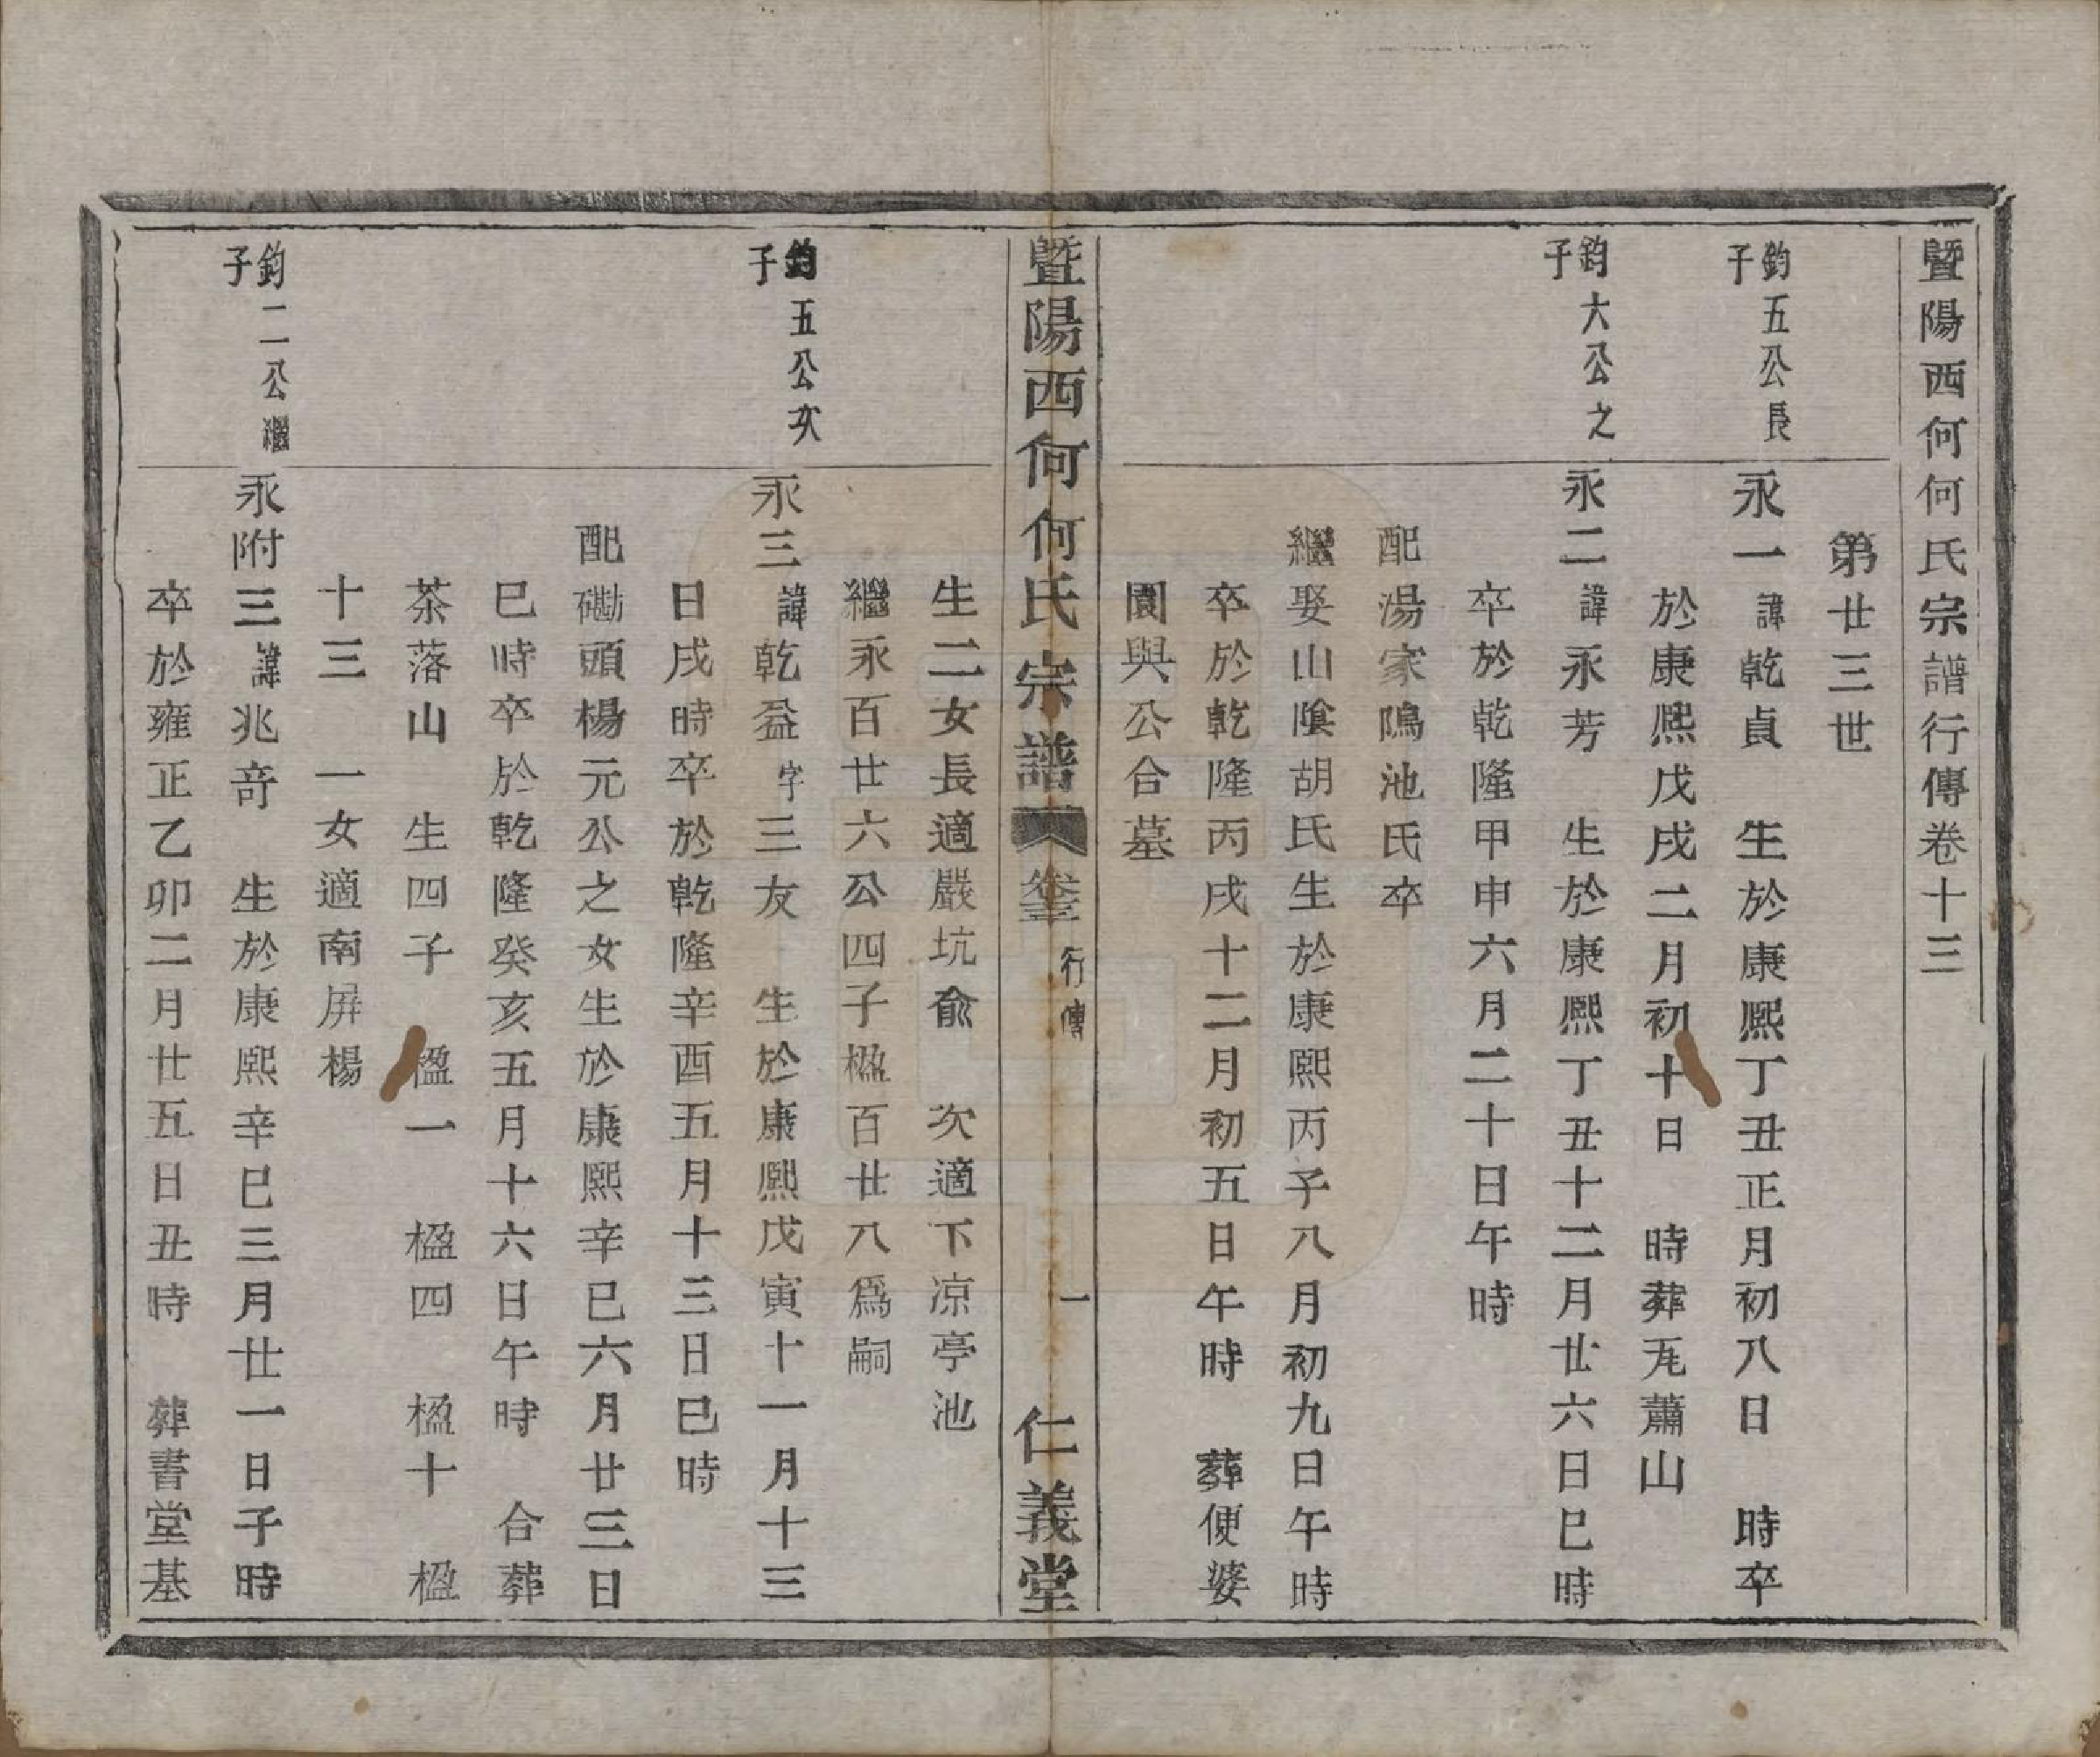 暨陽西何何氏宗譜行傳卷十三
第廿三世
鈞五公長子
永一諱乾貞　生於康熙丁丑正月初八日　時卒
於康熙戊戌二月初十日　時葬瓦蕭山
鈞大公之子
永二諱永芳　生於康熙丁丑十二月廿六日巳時
卒於乾隆甲申六月二十日午時
配湯家鳴池氏卒
繼娶山陰胡氏生於康熙丙子八月初九日午時
卒於乾隆丙戌十二月初五日午時　葬便婆
園與公合墓
暨陽西何何氏宗譜　卷三　行傳　一　仁義堂
生二女長適嚴坑俞　次適下凉亭池
繼永百廿六公四子楹百廿八爲嗣
鈞五公次子
永三諱乾益字三友　生於康熙戊寅十一月十三
日戌時卒於乾隆辛酉五月十三日巳時
配磡頭楊元公之女生於康熙辛巳六月廿三日
巳時卒於乾隆癸亥五月十六日午時　合葬
茶落山　生四子　楹一　楹四　楹十　楹
十三　一女適南屏楊
鈞二公繼子
永附三諱兆奇　生於康熙辛巳三月廿一日子時
卒於雍正乙卯二月廿五日丑時　葬書堂基